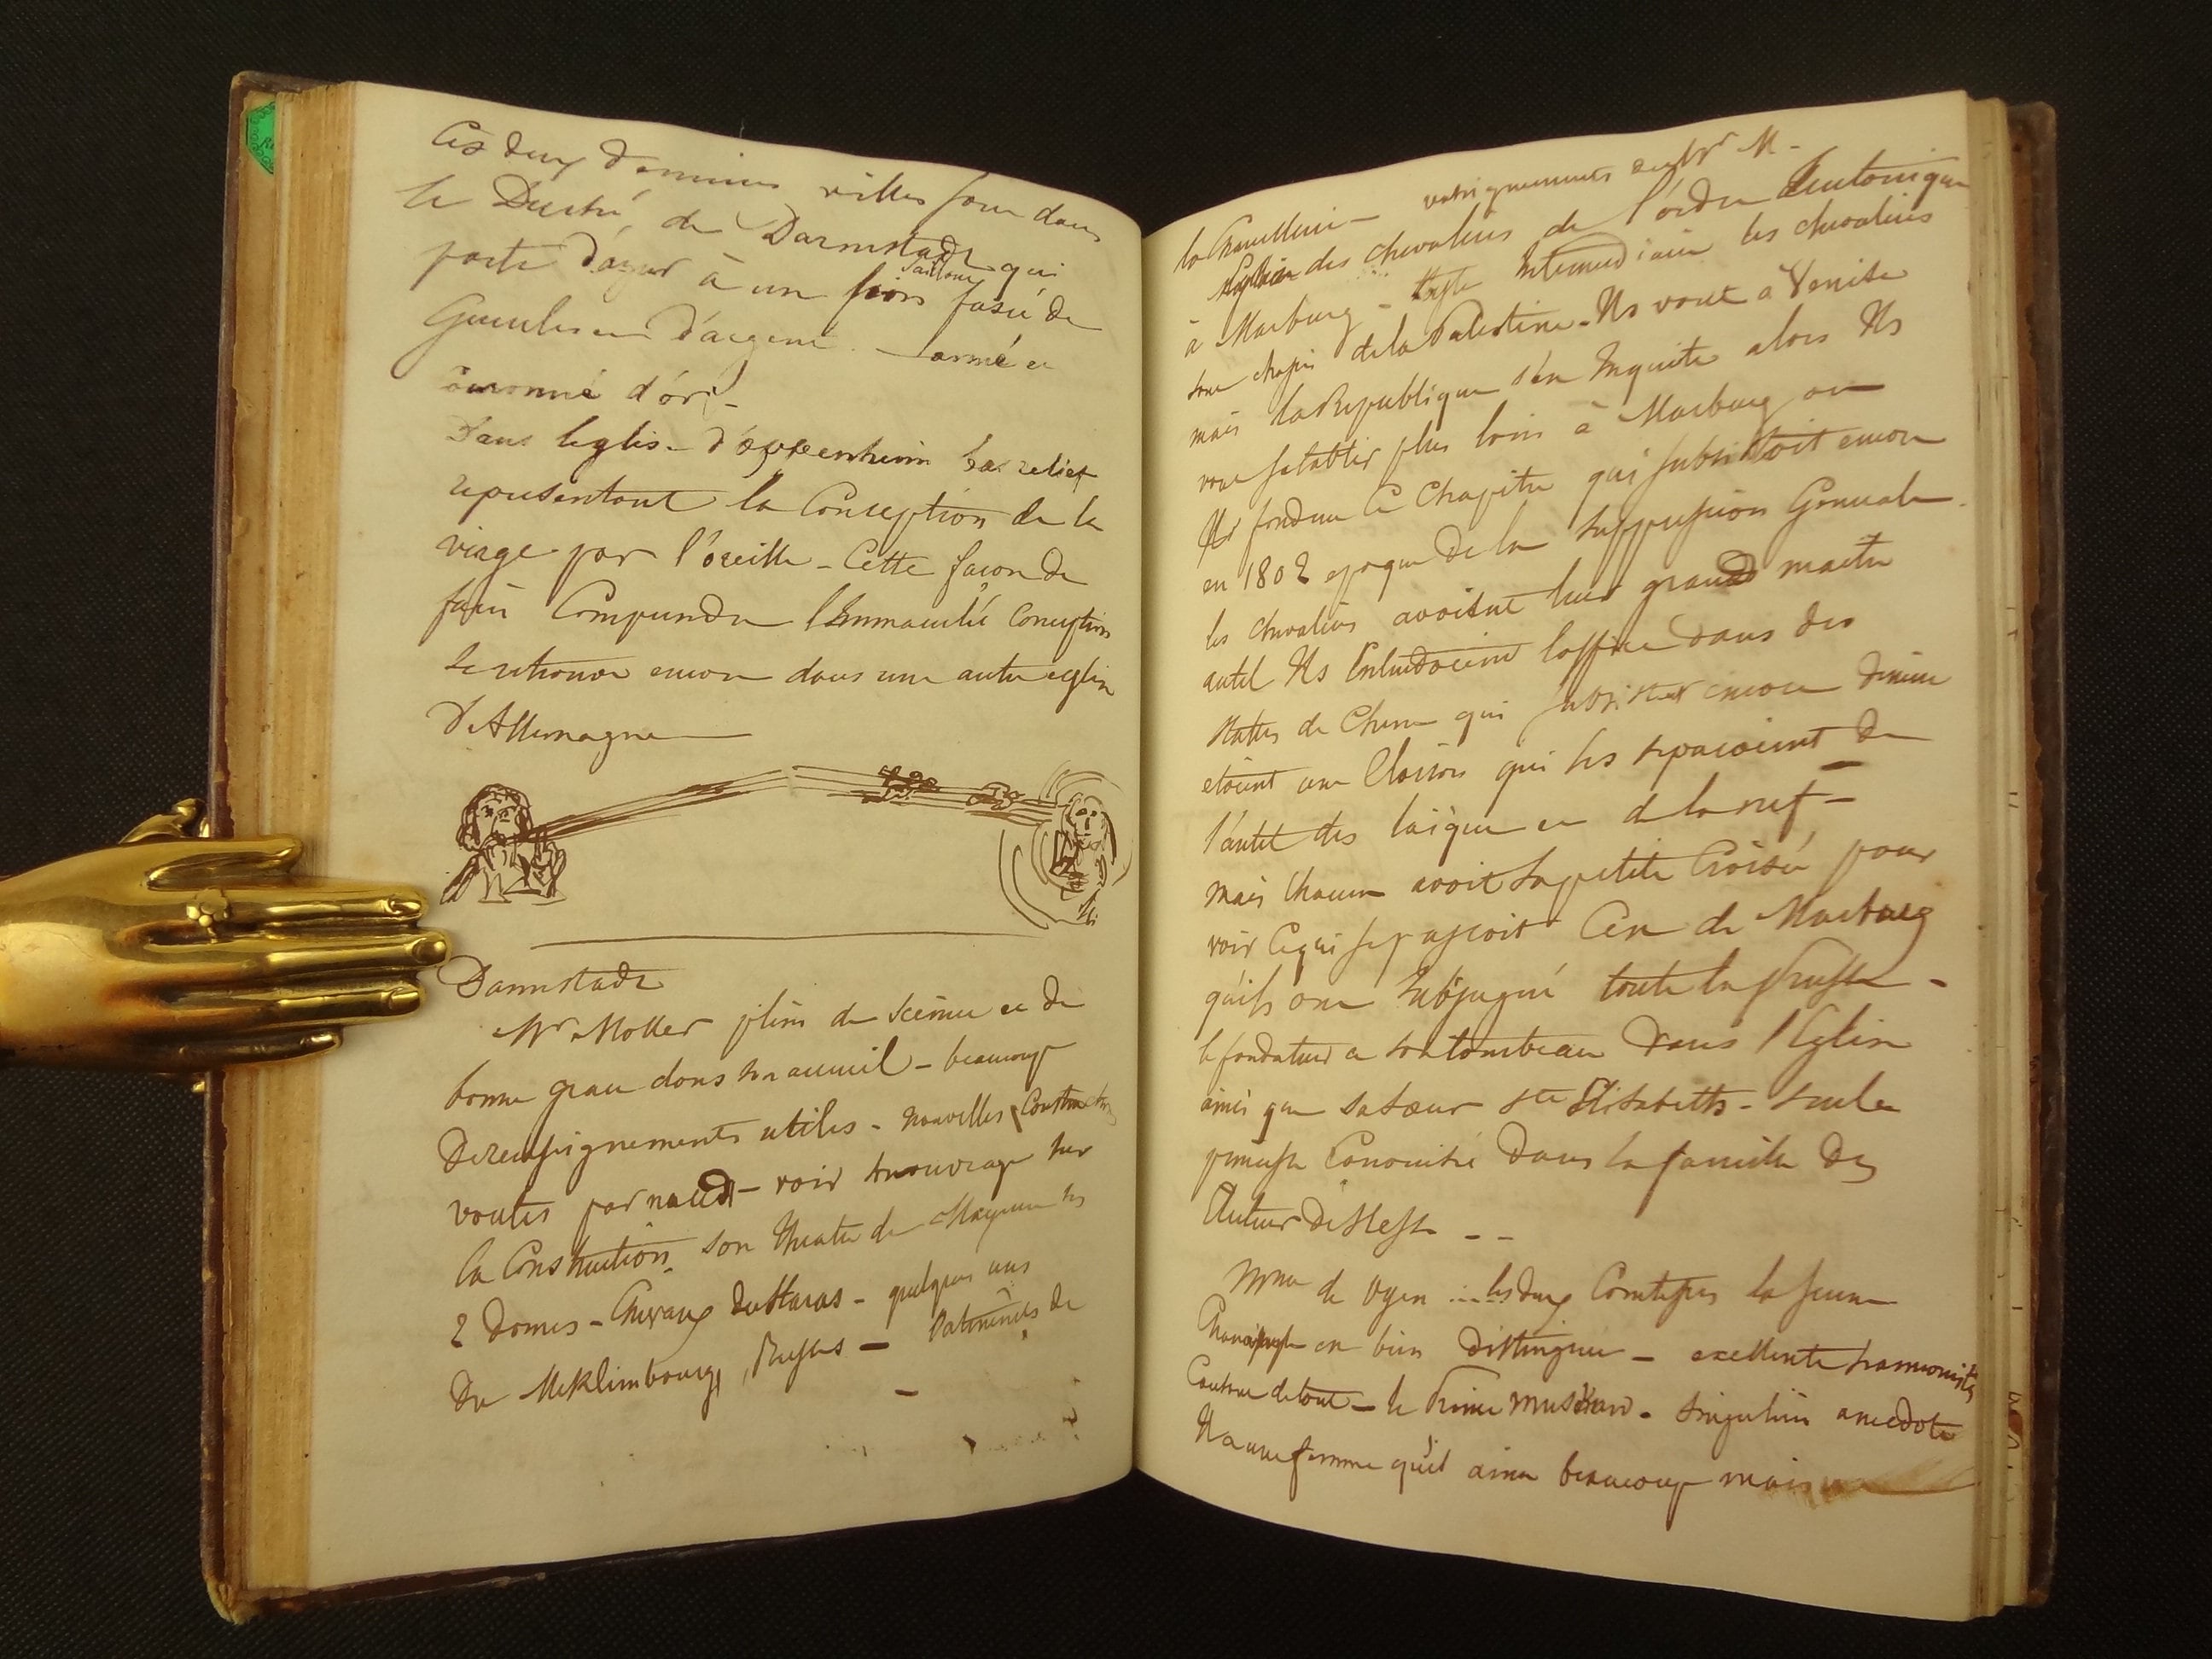 Ces deux dernieres villes sont dans
le Duché de Darmstadt qui
porte d'azur à un lion saillant fascé de
Gueules et d'argent armé et
Couronné d'or -
Dans leglise d'oppenheim bas relief
representant la Conception de la
vierge par l'oreille - Cette façon de
faire Comprendre l'Immaculée Conception
se retrouve encore dans une autre eglise
D'Allemagne
Darmstadt
Mr Moller plein de Science et de
bonne grace dans son accueil - beaucoup
De renseignements utiles - nouvelles Constructions
voutes par nauds - voir son ouvrage sur
la Construction. son theatre de Mayence ses
2 Domes - Chevaux du Haras - quelques uns
Du Meklimbourg, Russes - Batiments de
la - renseignements sur M -
Eglise des chevaliers de l'ordre Teutonique
à Marburg - style Intermediaire les chevaliers
sont chassés de la Palestine - Ils vont à Venise
mais la Republique s'en Inquiete alors Ils
vont setablir plus loin à Marburg ou
Ils fondent Ce Chapitre qui subsistoit encore
en 1802 epoque de la suppression Generale.
les chevaliers avoient leur grand maitre
autel Ils Entendoient loffice dans des
stalles de Chene qui subsistent encore
etoient une Cloison qui les separoient de
l'autel des laïques et de la nef -
mais Chacun avoit sa petite Croisée pour
voir Ce qui se passoit C'est de Marburg
qu'ils ont Subjugué toute la Prusse -
le fondateur a son tombeau dans l'Eglise
ainsi que sa sœur ste Elisabeth - seule
princesse Canonisée Dans la famille Des
De Hesse - -
Mme de Oyen ... les deux Comtesses la jeune
Chanoinesse est bien distinguée - excellente harmoniste
Conteuse de tout - le Prince musicien - singuliere anecdote
Il a une femme qu'il aime beaucoup mais